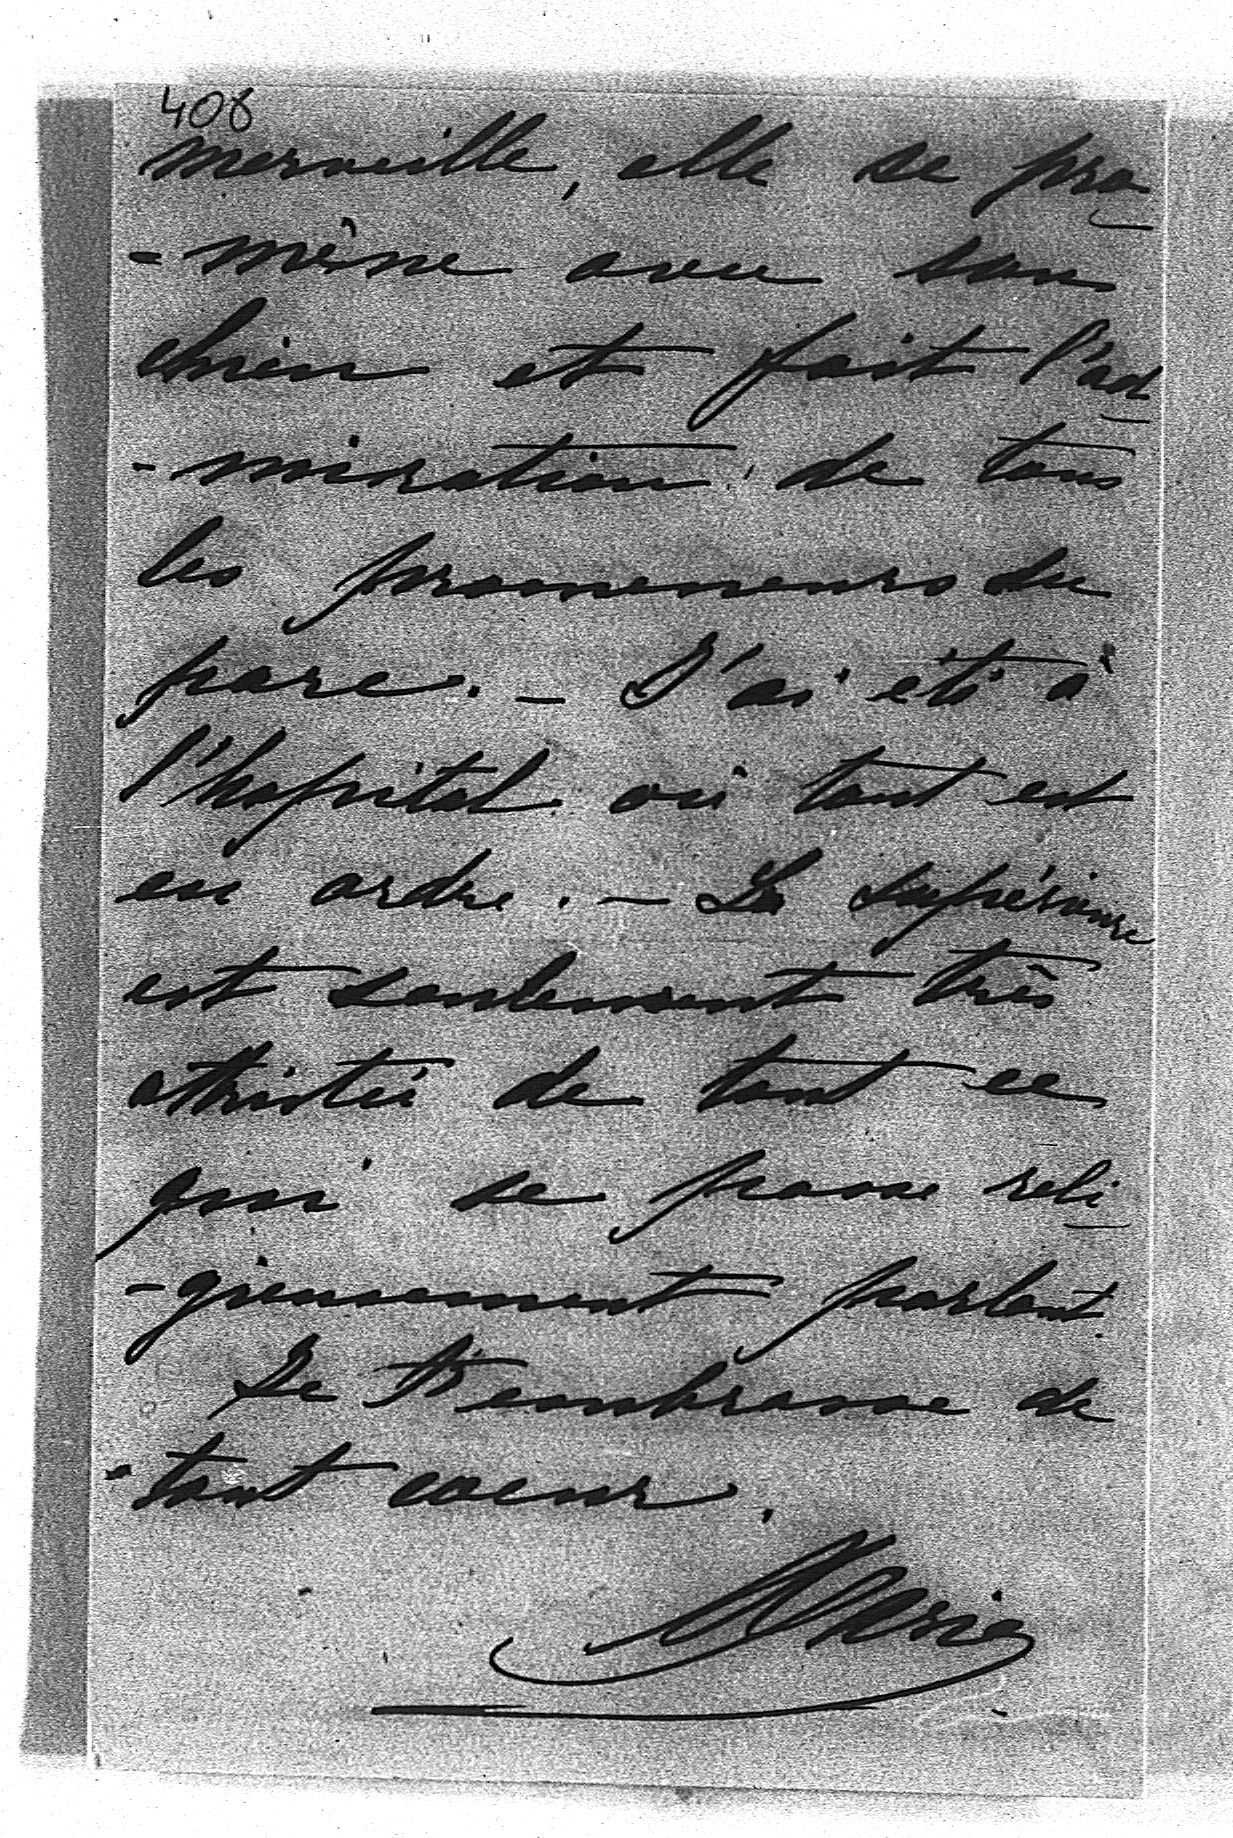 408
merveille, elle se pro
-mène avec son
chien et fait l'ad
-miration de tous
les promeneurs du
parc. - J'ai été à
l'hopital où tout est
en ordre. - La supérieure
est seulement très
attristée de tout ce
qui se passe reli
-gieusement parlant.
Je t'embrasse de
-tout coeur.
Marie